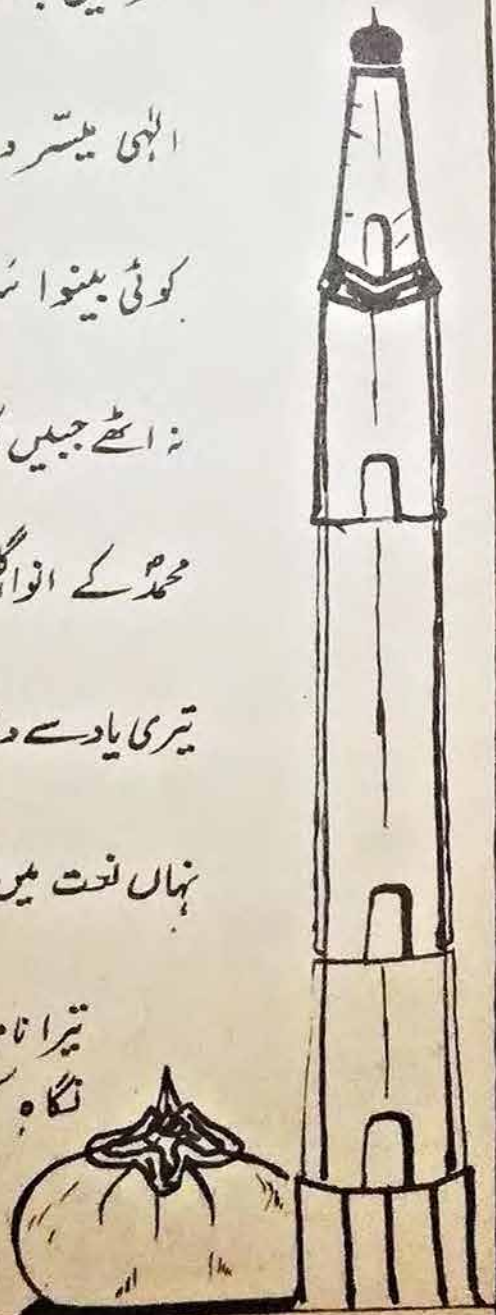 الہٰی میسّر
کوئی بینوا
نہ اٹھے جبیں
محمدؐ کے
تیری یاد سے
نہاں نعت میں
تیرا
نگاہ